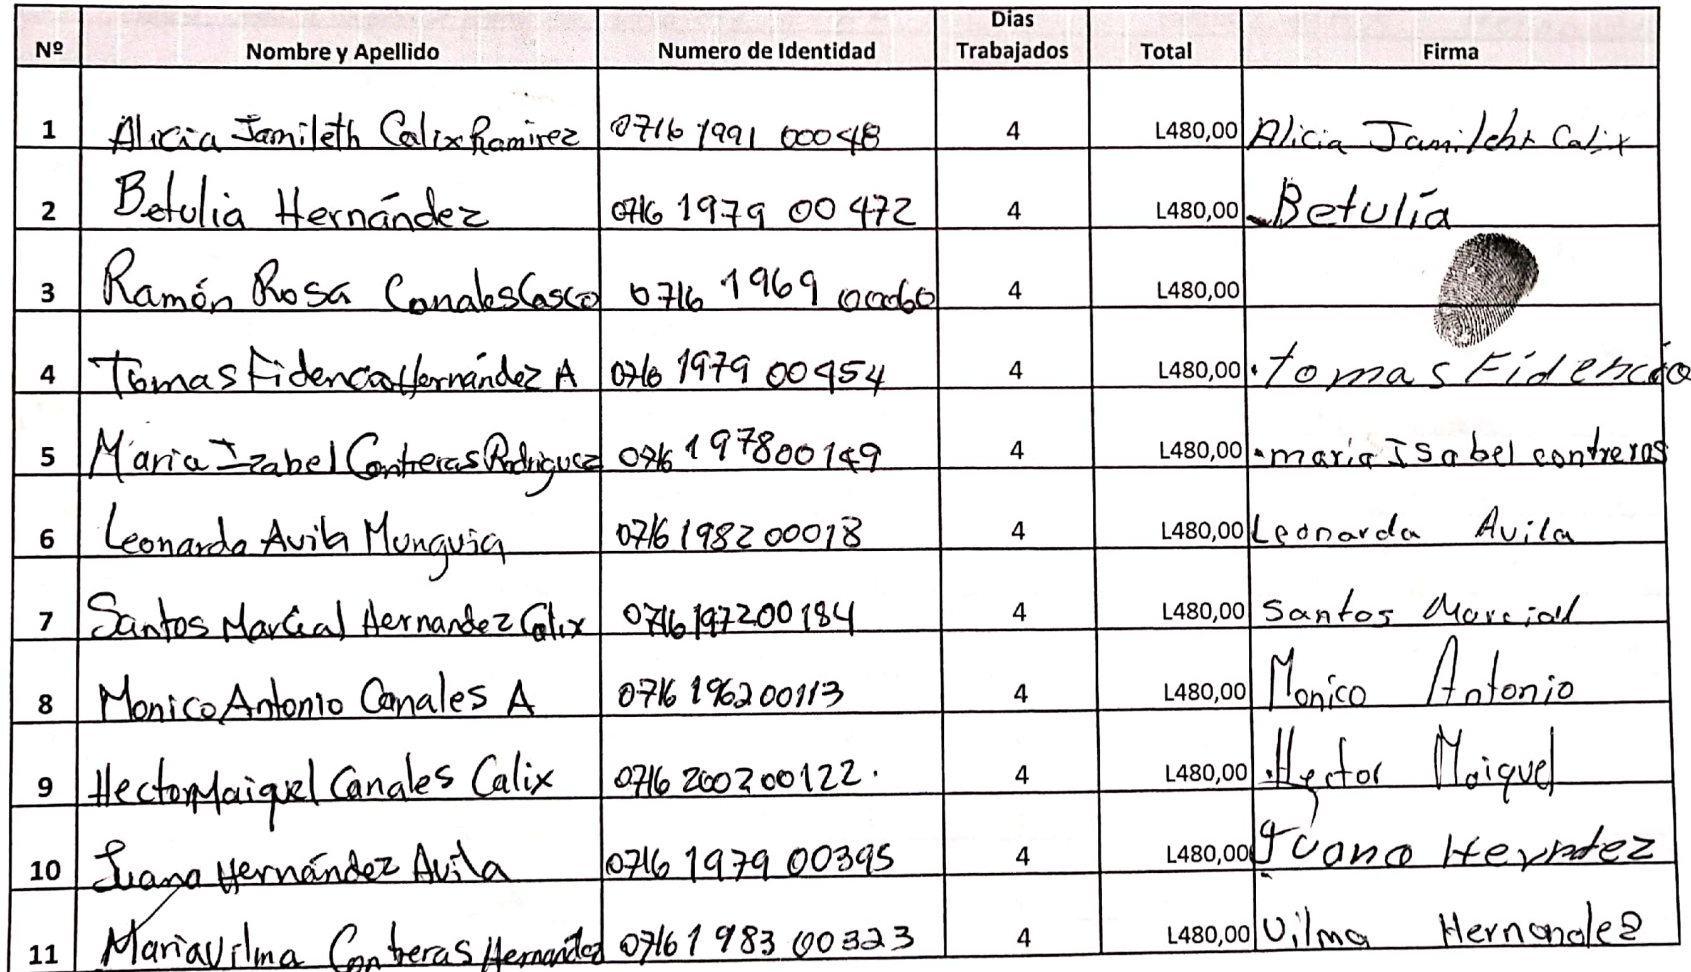 Nº Nombre y Apellido Numero de Identidad Dias Trabajados Total Firma
1 Alicia Jamileth Calix Ramirez 0716 1991 00048 4 L480,00 Alicia Jamileht Calix
2 Betulia Hernández 0716 1979 00472 4 L480,00 Betulia
3 Ramón Rosa Canales Casco 0716 1969 00060 4 L480,00
4 Tomas Fidencio Hernández A 0716 1979 00454 4 L480,00 tomas Fidencio
5 Maria Izabel Contreras Rodriguez 0716 1978 00149 4 L480,00 maria Isabel contreras
6 Leonarda Avila Munguia 0716 1982 00018 4 L480,00 Leonarda Avila
7 Santos Marcial Hernandez Calix 0716 1972 00184 4 L480,00 Santos Marcial
8 Monico Antonio Canales A 0716 1962 00113 4 L480,00 Monico Antonio
9 Hector Maiquel Canales Calix 0716 2002 00122. 4 L480,00 Hector Maiquel
10 Juana Hernández Avila 0716 1979 00395 4 L480,00 Juana
11 Maria Vilma Contreras Hernandez 0716 1983 00323 4 L480,00 Vilma Hernandez